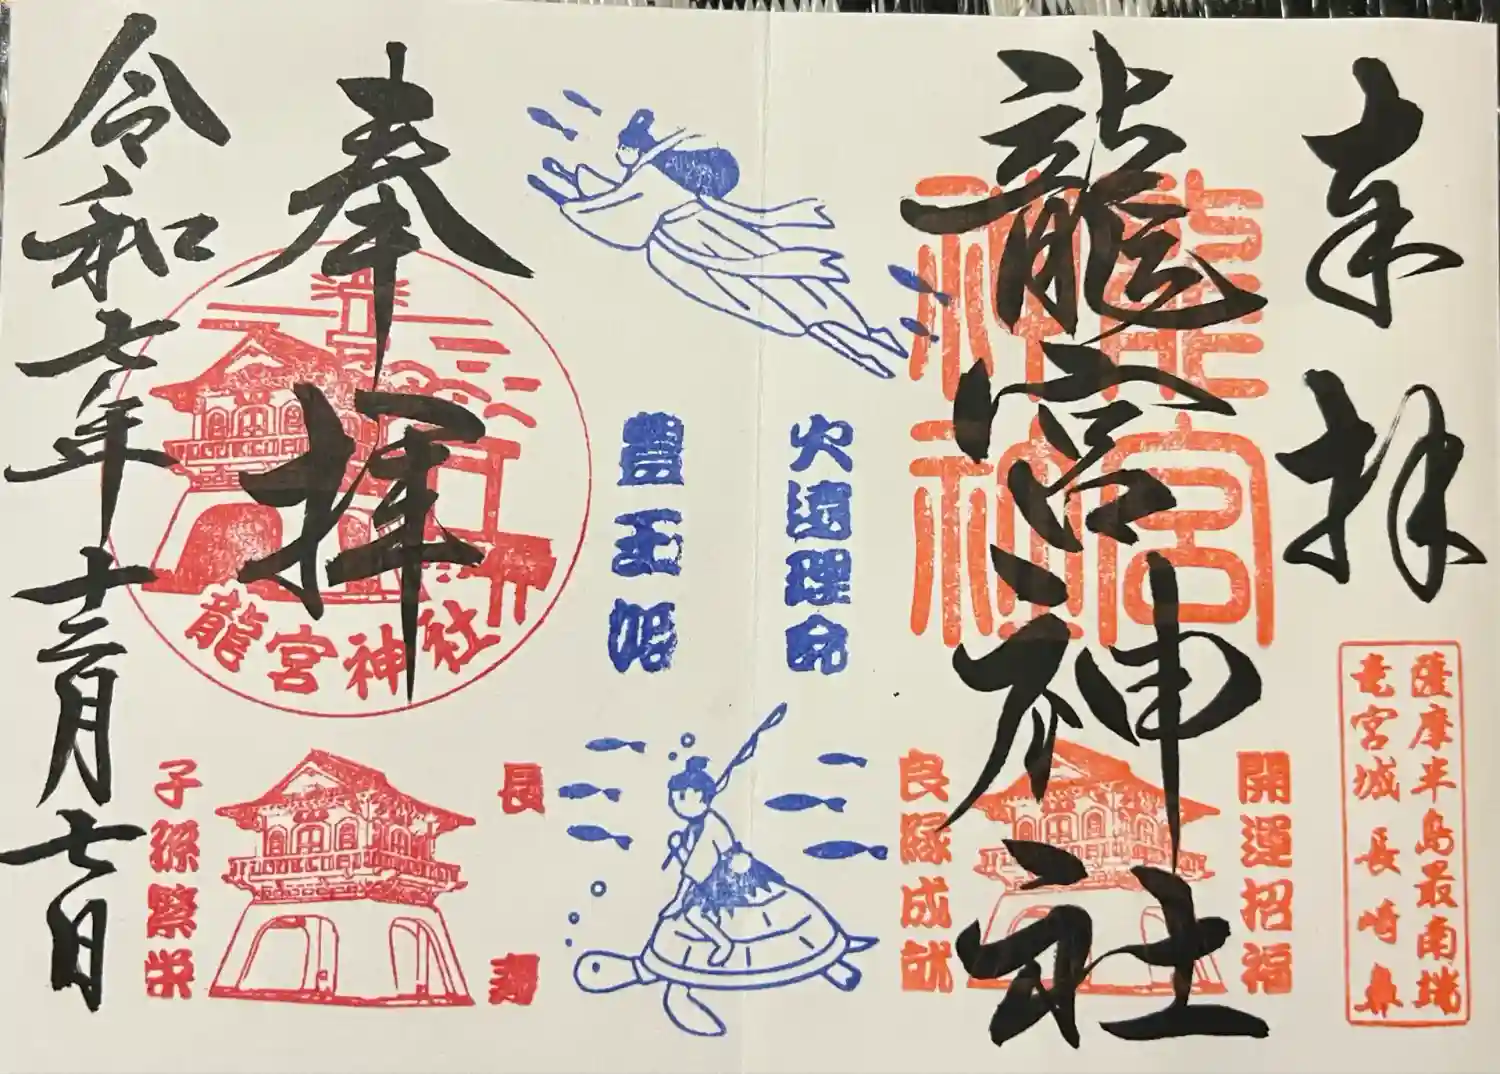 奉拝
薩摩半島最南端
竜宮城長崎鼻
龍宮神社
龍宮
神社
開運招福
良縁成就
火遠理命
豊玉姫
奉拝
龍宮神社
長寿
子孫繁栄
令和七年十二月七日